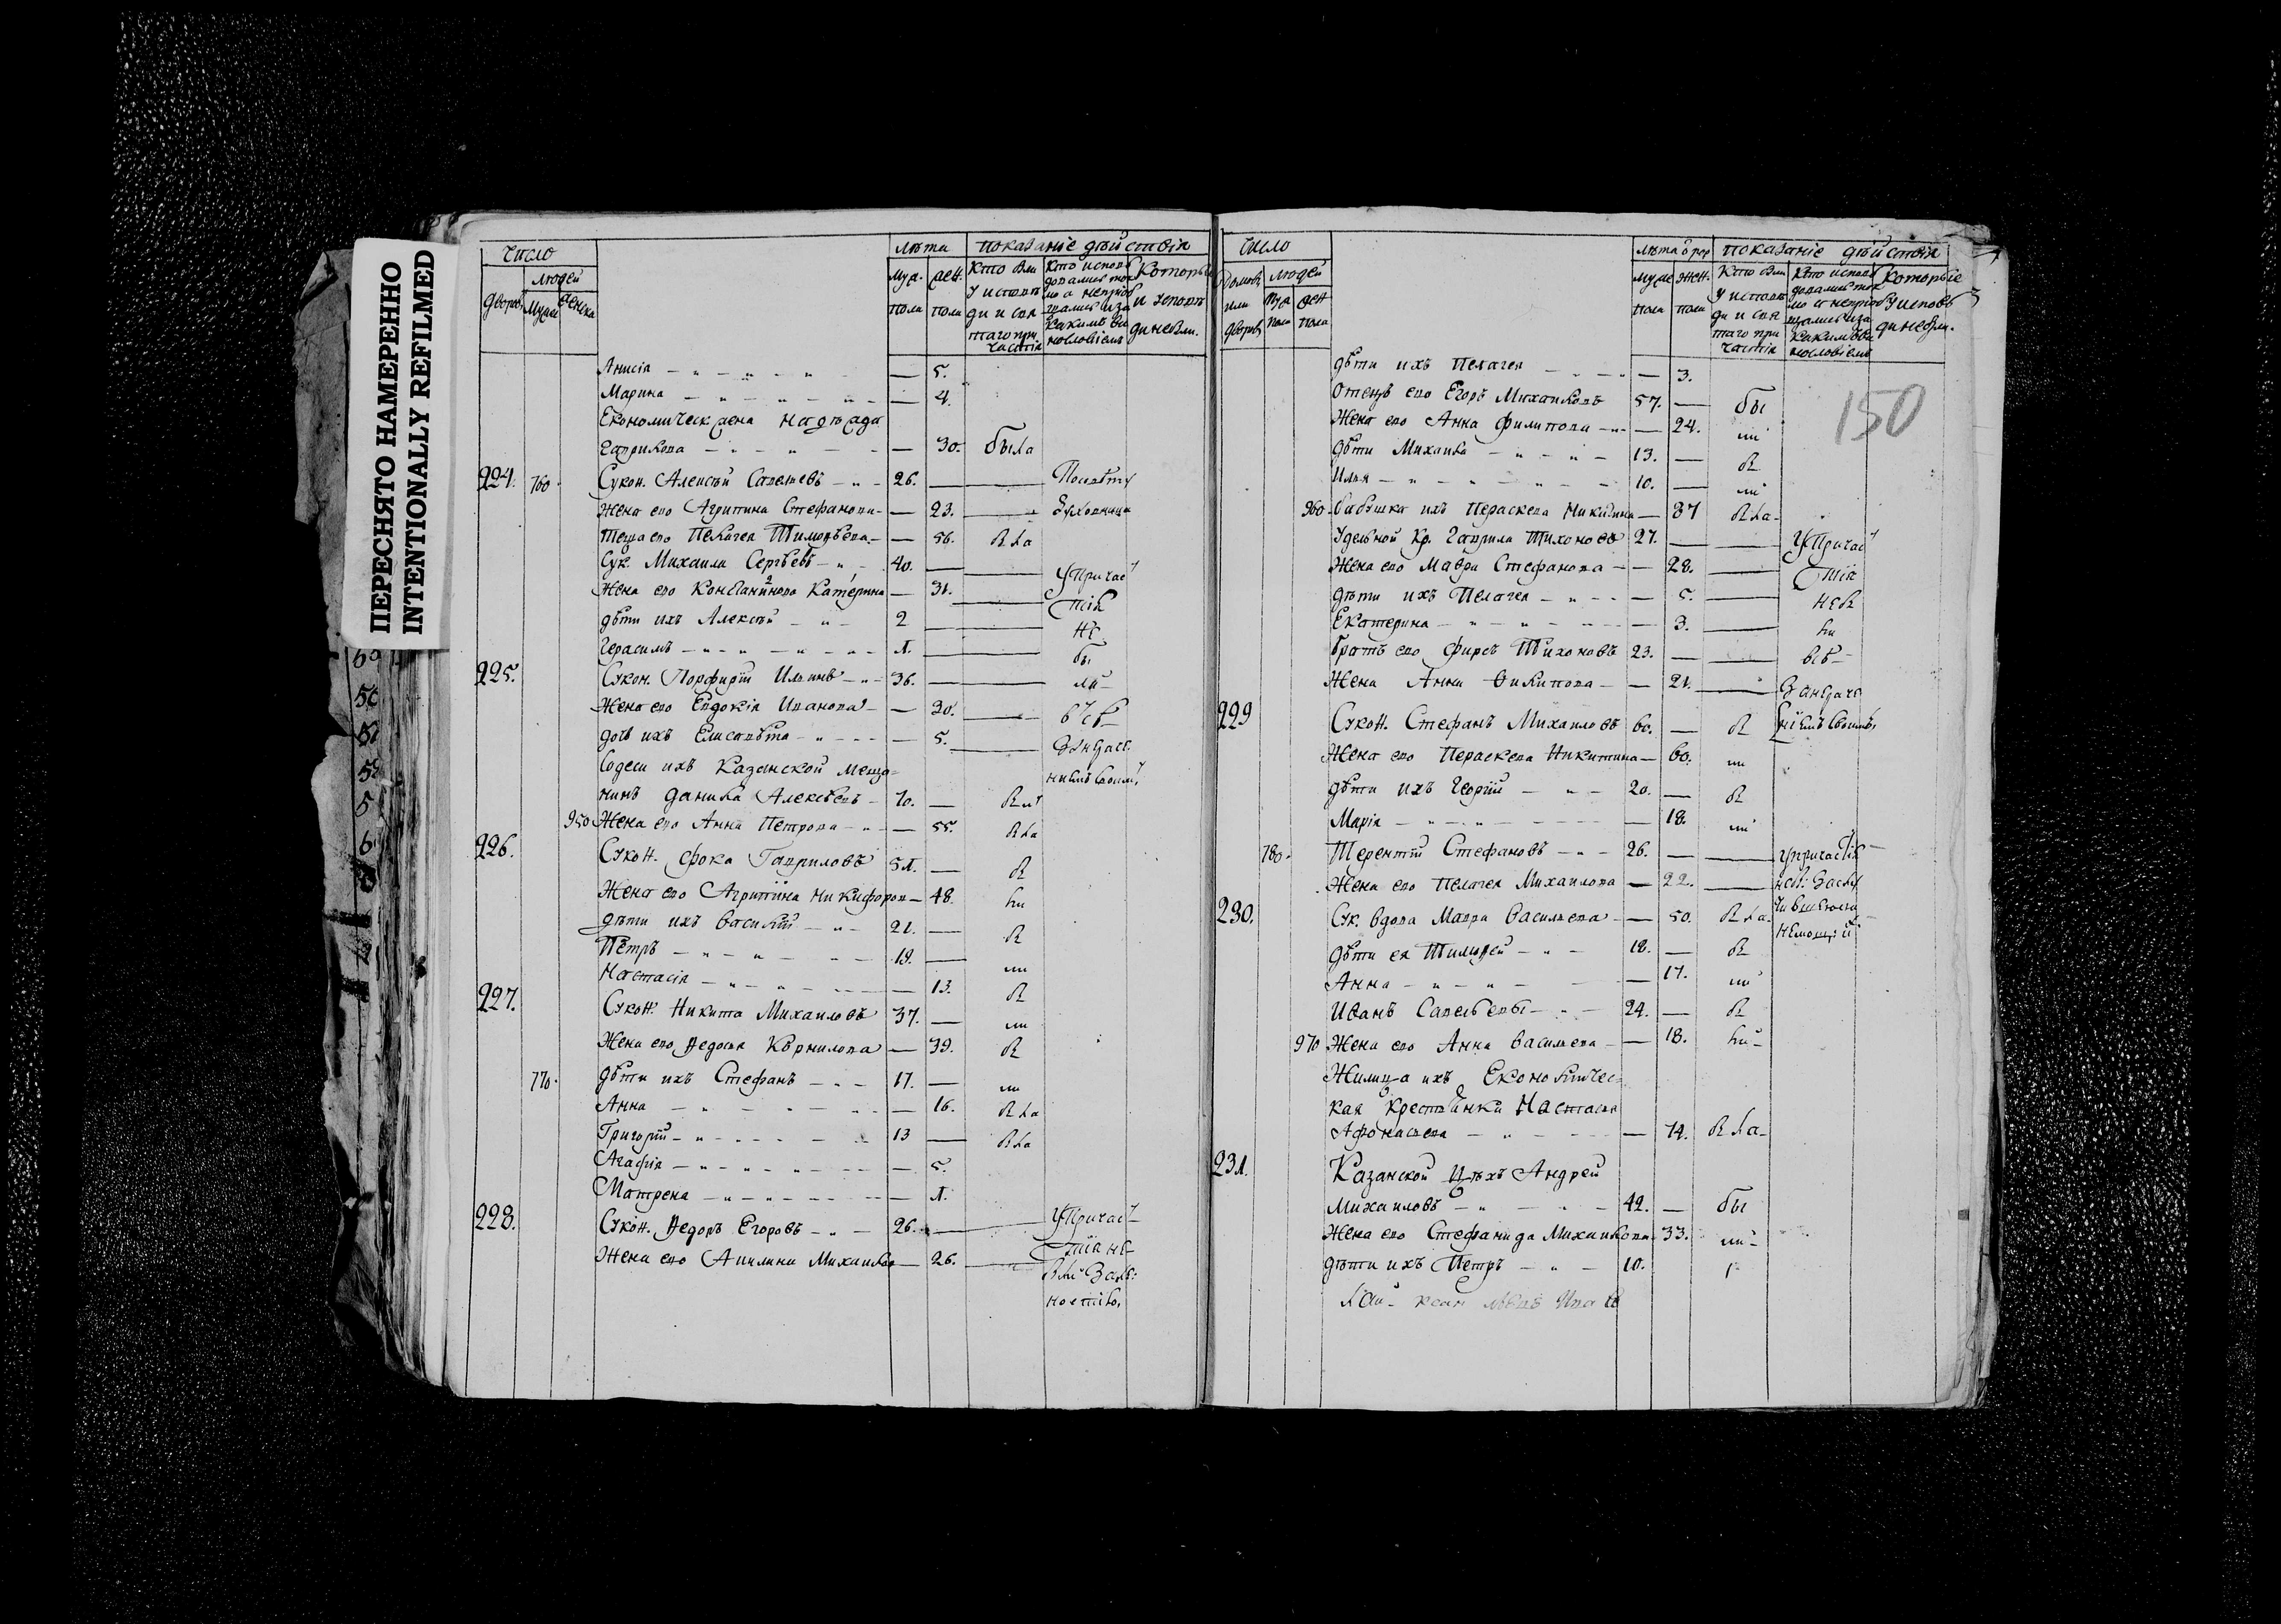 ПЕРЕСНЯТО НАМЕРЕННО
INTENTIONALLY REFILMED
Число лѣта показанiе дѣйствiя
людей
дворов муж. женска
муж. пола жен. пола
Кто были у исповѣди и святаго причастiя
Кто исповѣдались токмо а неприобщались и за какимъ винословiемъ
Которые и у исповѣди небыли.
Анисiя — 5.
Марина — 4.
Економическ жена
Гаврилова — 30. была
224. 760. Сукон. Алексѣй Савельевъ 26. —
Жена ево Агрипина Стефанова — 23. —
Теща ево Пелагея Тимофѣева — 56. была
Сук. Михаила Сергѣевъ 40. —
Жена ево Констанинова Катерина — 31. — у Причас
дѣти ихъ Алексѣй 2 — тiя
Герасимъ 1. — не
225. Сукон. Порфирiй Ильинъ 36. — бы
Жена ево Евдокiя Иванова — 30. — ли
дочь ихъ Елисавѣта — 5. —
Казанской меща-
нинъ данила Алексѣевъ 70. —
950 Жена ево Анна Петрова — 55. была
226. Сукон. фока Гавриловъ 51. — бы
Жена ево Агрипiна Никифоров — 48. ли
дѣти ихъ Василiй 21. — бы
Петръ 19. — ли
Настасiя — 13. бы
227. Сукон. Никита Михаиловъ 37. — ли
Жена ево Федосья Корнилова — 39. бы
770. дѣти ихъ Стефанъ 17. — ли
Анна — 16. была
Григорiй 13 — была
Агафiя — 5.
Матрена — 1.
228. Сукон. Федоръ Егоровъ 26. — у Причас
Жена ево Акилина Михаилова — 26. — тiя не
Число лѣта показанiе дѣйствiя
домов или дворов людей муж. пола жен. пола
муже пола жен. пола
Кто были у исповѣди и святаго причастiя
Кто исповѣдались токмо и неприобщались и за какимъ винословiемъ
Которые у исповѣди небыли.
150
дѣти ихъ Пелагея — 3.
Отецъ ево Егоръ Михаиловъ 57. — бы
Жена ево Анна Филипова — 24. ли
дѣти Михаила 13. — бы
Илья 10. — ли
960 бабушка ихъ Пераскева Никитина — 87 была
Удельной Кр. Гаврила Тихоновъ 27. — у Причас
Жена ево Мавра Стефанова — 28. — тiя
дѣти ихъ Пелагея — 5. — небы
Екатерина — 3. — ли
братъ ево Фирсъ Тихоновъ 23. —
Жена Анна Филипова — 21. —
229 Сукон. Стефанъ Михаиловъ 60. — бы
Жена ево Пераскева Никитина — 60. ли
дѣти ихъ Георгiй 20. — бы
Марiя — 18. ли
780. Терентiй Стефановъ 26. — у причастiя
Жена ево Пелагея Михаилова — 22. —
230. Сук. вдова Мавра Васильева — 50. была
дѣти ея Тимофей 18. — бы
Анна — 17. ли
Иванъ Савельевъ 24. — бы
970 Жена ево Анна Васильева — 18. ли
Жилица ихъ Економичес-
кая крестьянка Настасья
Афонасьева — 74. была
231. Казанской Цѣхъ Андрей
Михаиловъ 42. — бы
Жена ево Стефанида Михаилова 33. ли
дѣти ихъ Петръ 10.